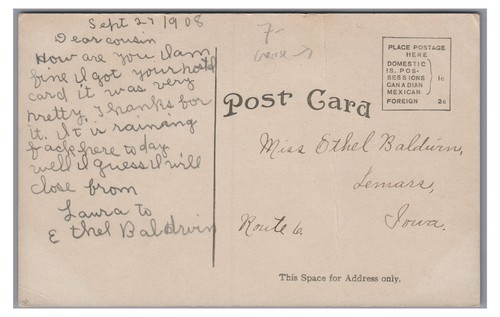 Sept 27 1908
Dear cousin
How are you I am
fine I got your postl
card it was very
pretty. Thanks for
it. It is raining
here today
well I guess I will
close from
Laura to
Ethel Baldwin
7-
crease →
PLACE POSTAGE
HERE
DOMESTIC
IS. POS-
SESSIONS 1c
CANADIAN
MEXICAN
FOREIGN 2c
Post Card
Miss Ethel Baldwin,
Lemars,
Route 6. Iowa.
This Space for Address only.